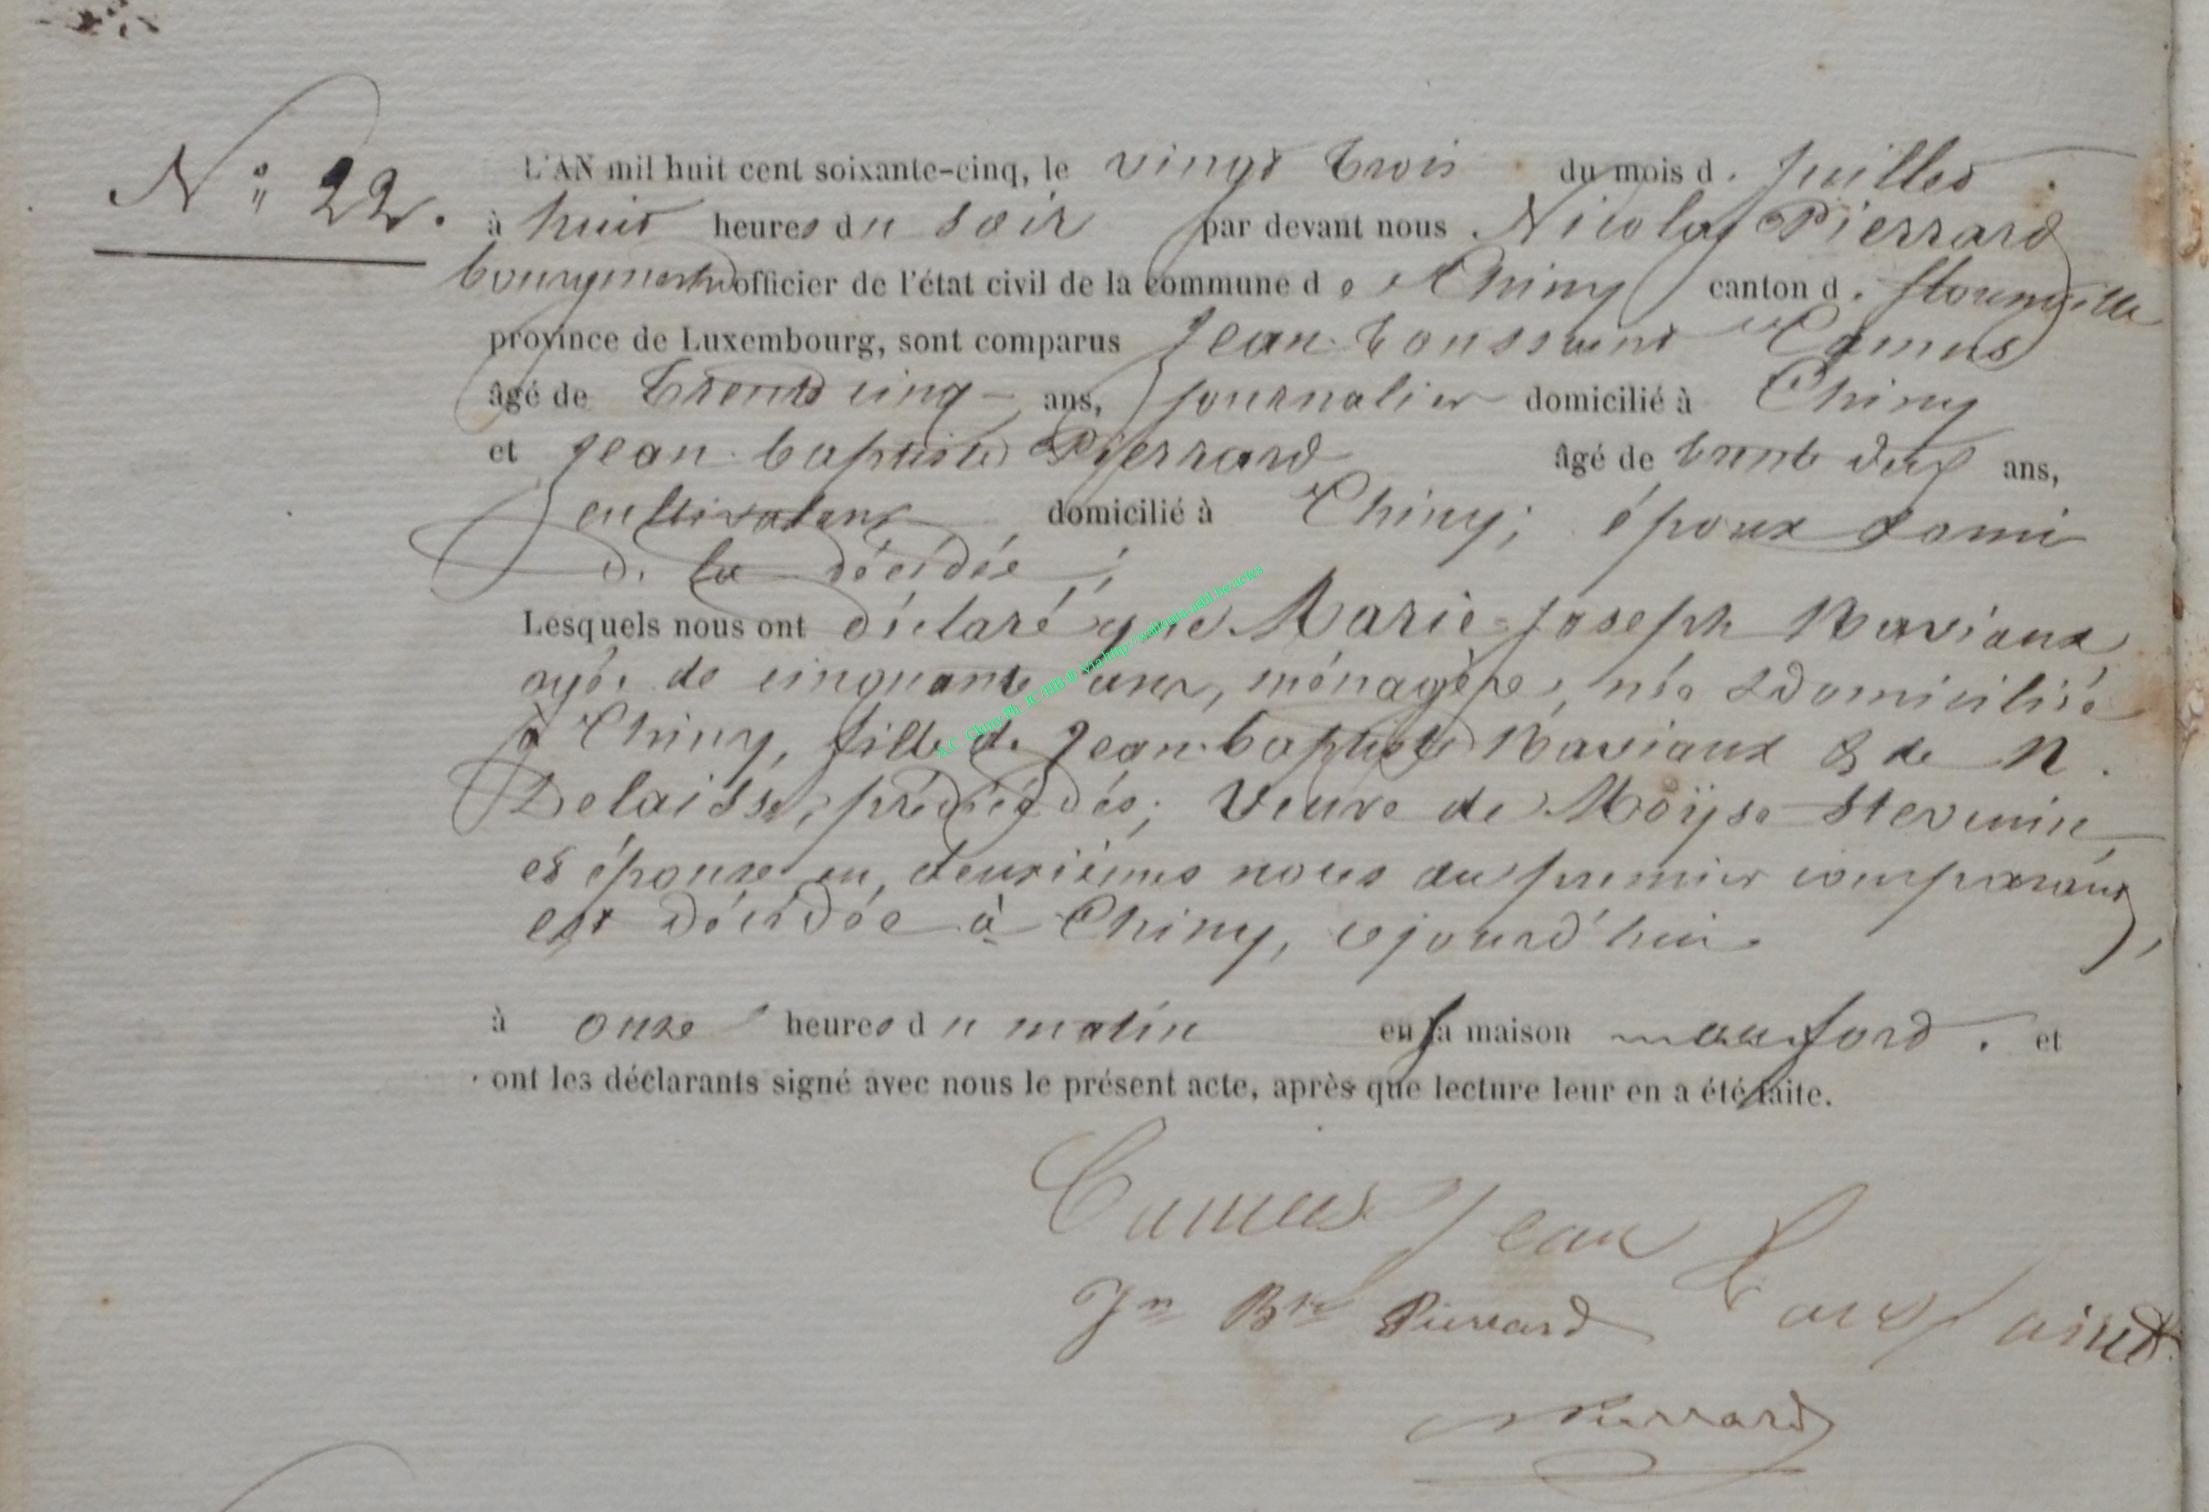 N° 22.
L'AN mil huit cent soixante-cinq, le vingt trois du mois d. Juillet.
à huit heures du soir par devant nous Nicolas Pierrard
bourgmestre officier de l'état civil de la commune de Chiny canton d. florenville
province de Luxembourg, sont comparus Jean-Toussaint Camus
âgé de trente cinq ans, journalier domicilié à Chiny
et Jean-baptiste Pierrard âgé de trente deux ans,
cultivateur domicilié à Chiny; époux & ami
d. la décédée;
Lesquels nous ont déclaré que Marie-Joseph Raviaux
agée de cinquante ans, ménagère, née & domiciliée
à Chiny, fille d. Jean-baptiste Raviaux & de N.
Delaisse, prédécédés; Veuve de Moÿse Stevenin
et épouse en deuxièmes noces du premier comparant,
est décédée à Chiny, cejourd'hui
à onze heures du matin en sa maison et
ont les déclarants signé avec nous le présent acte, après que lecture leur en a été faite.
Camus Jean Toussaint
Jn Bte Pierrard
NPierrard